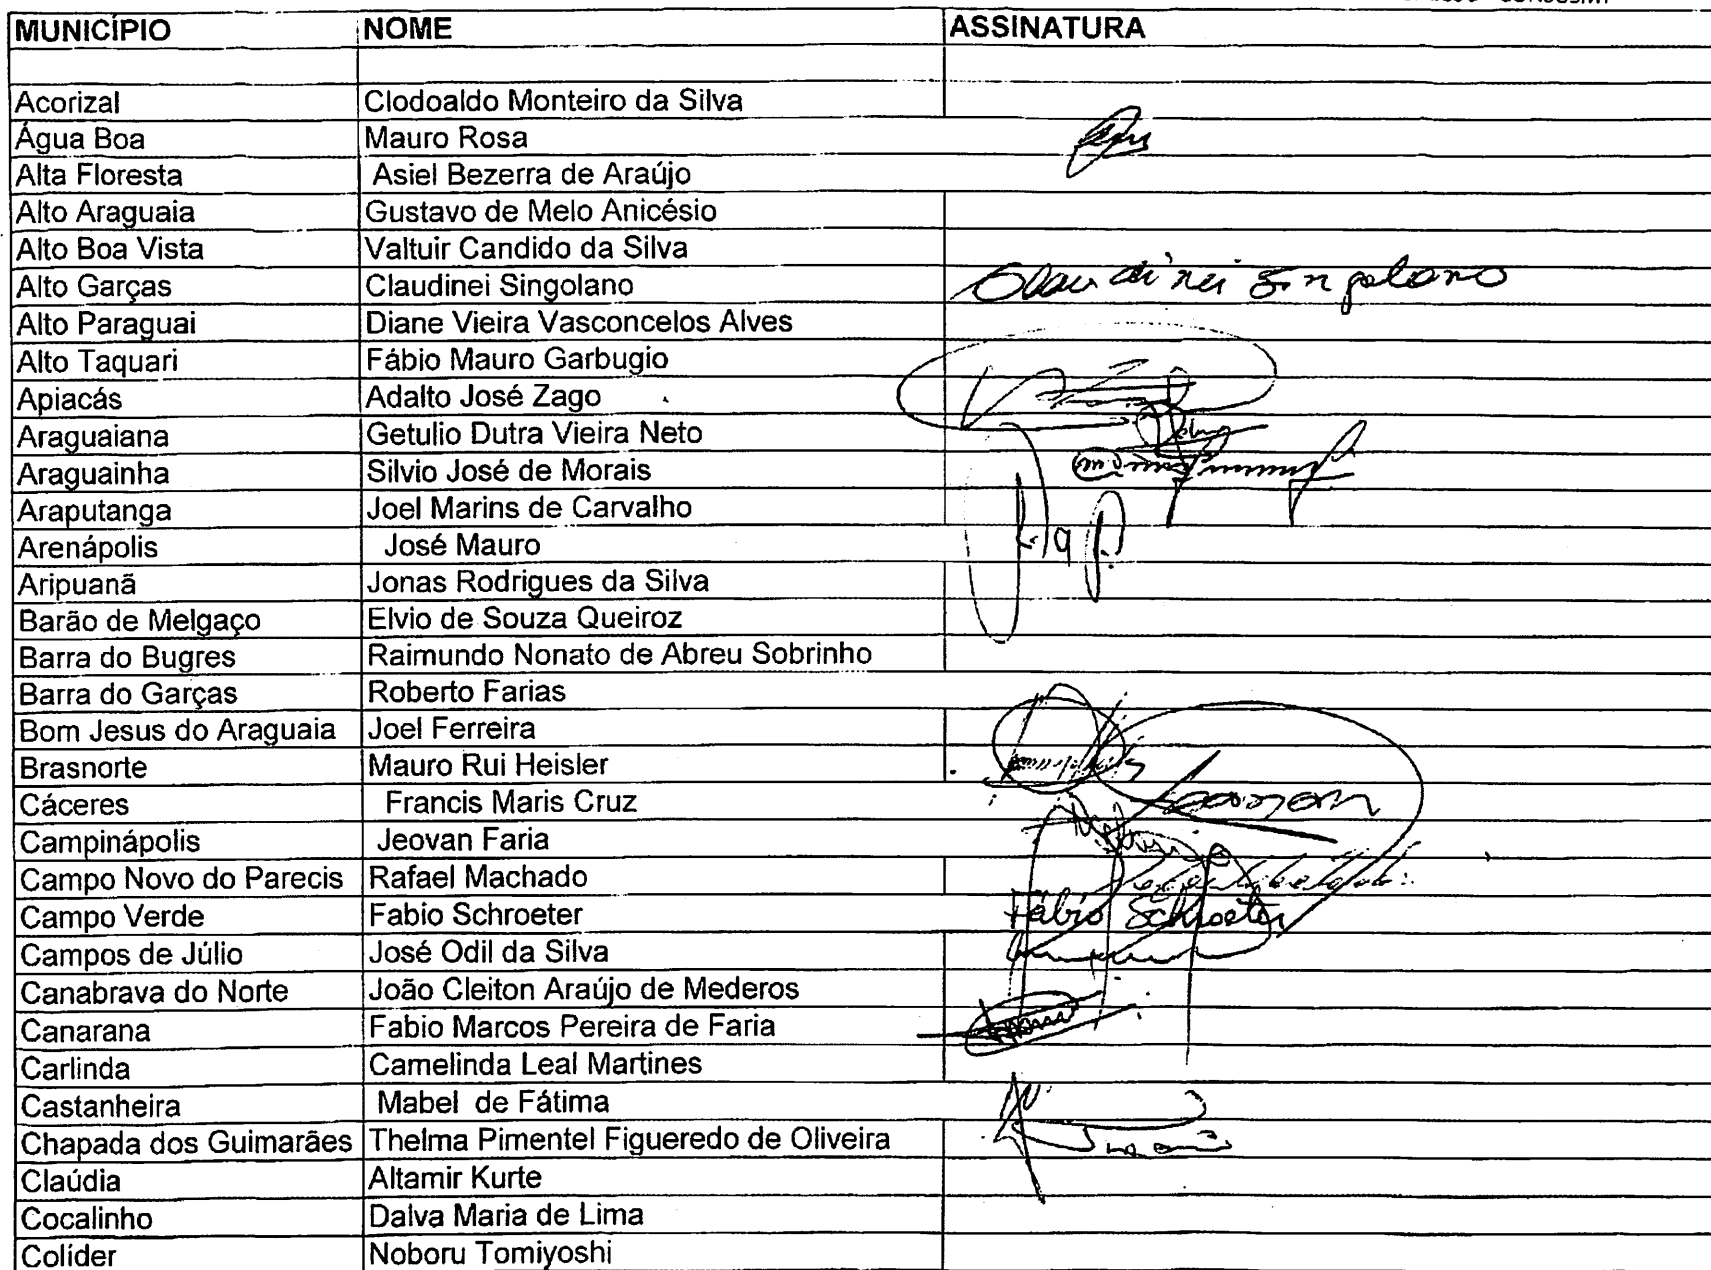 MUNICÍPIO NOME ASSINATURA
Acorizal Clodoaldo Monteiro da Silva
Água Boa Mauro Rosa
Alta Floresta Asiel Bezerra de Araújo
Alto Araguaia Gustavo de Melo Anicésio
Alto Boa Vista Valtuir Candido da Silva
Alto Garças Claudinei Singolano Claudinei Singolano
Alto Paraguai Diane Vieira Vasconcelos Alves
Alto Taquari Fábio Mauro Garbugio
Apiacás Adalto José Zago
Araguaiana Getulio Dutra Vieira Neto
Araguainha Silvio José de Morais
Araputanga Joel Marins de Carvalho
Arenápolis José Mauro
Aripuanã Jonas Rodrigues da Silva
Barão de Melgaço Elvio de Souza Queiroz
Barra do Bugres Raimundo Nonato de Abreu Sobrinho
Barra do Garças Roberto Farias
Bom Jesus do Araguaia Joel Ferreira
Brasnorte Mauro Rui Heisler
Cáceres Francis Maris Cruz
Campinápolis Jeovan Faria
Campo Novo do Parecis Rafael Machado
Campo Verde Fabio Schroeter Fábio Schroeter
Campos de Júlio José Odil da Silva
Canabrava do Norte João Cleiton Araújo de Mederos
Canarana Fabio Marcos Pereira de Faria
Carlinda Camelinda Leal Martines
Castanheira Mabel de Fátima
Chapada dos Guimarães Thelma Pimentel Figueredo de Oliveira
Claúdia Altamir Kurte
Cocalinho Dalva Maria de Lima
Colíder Noboru Tomiyoshi